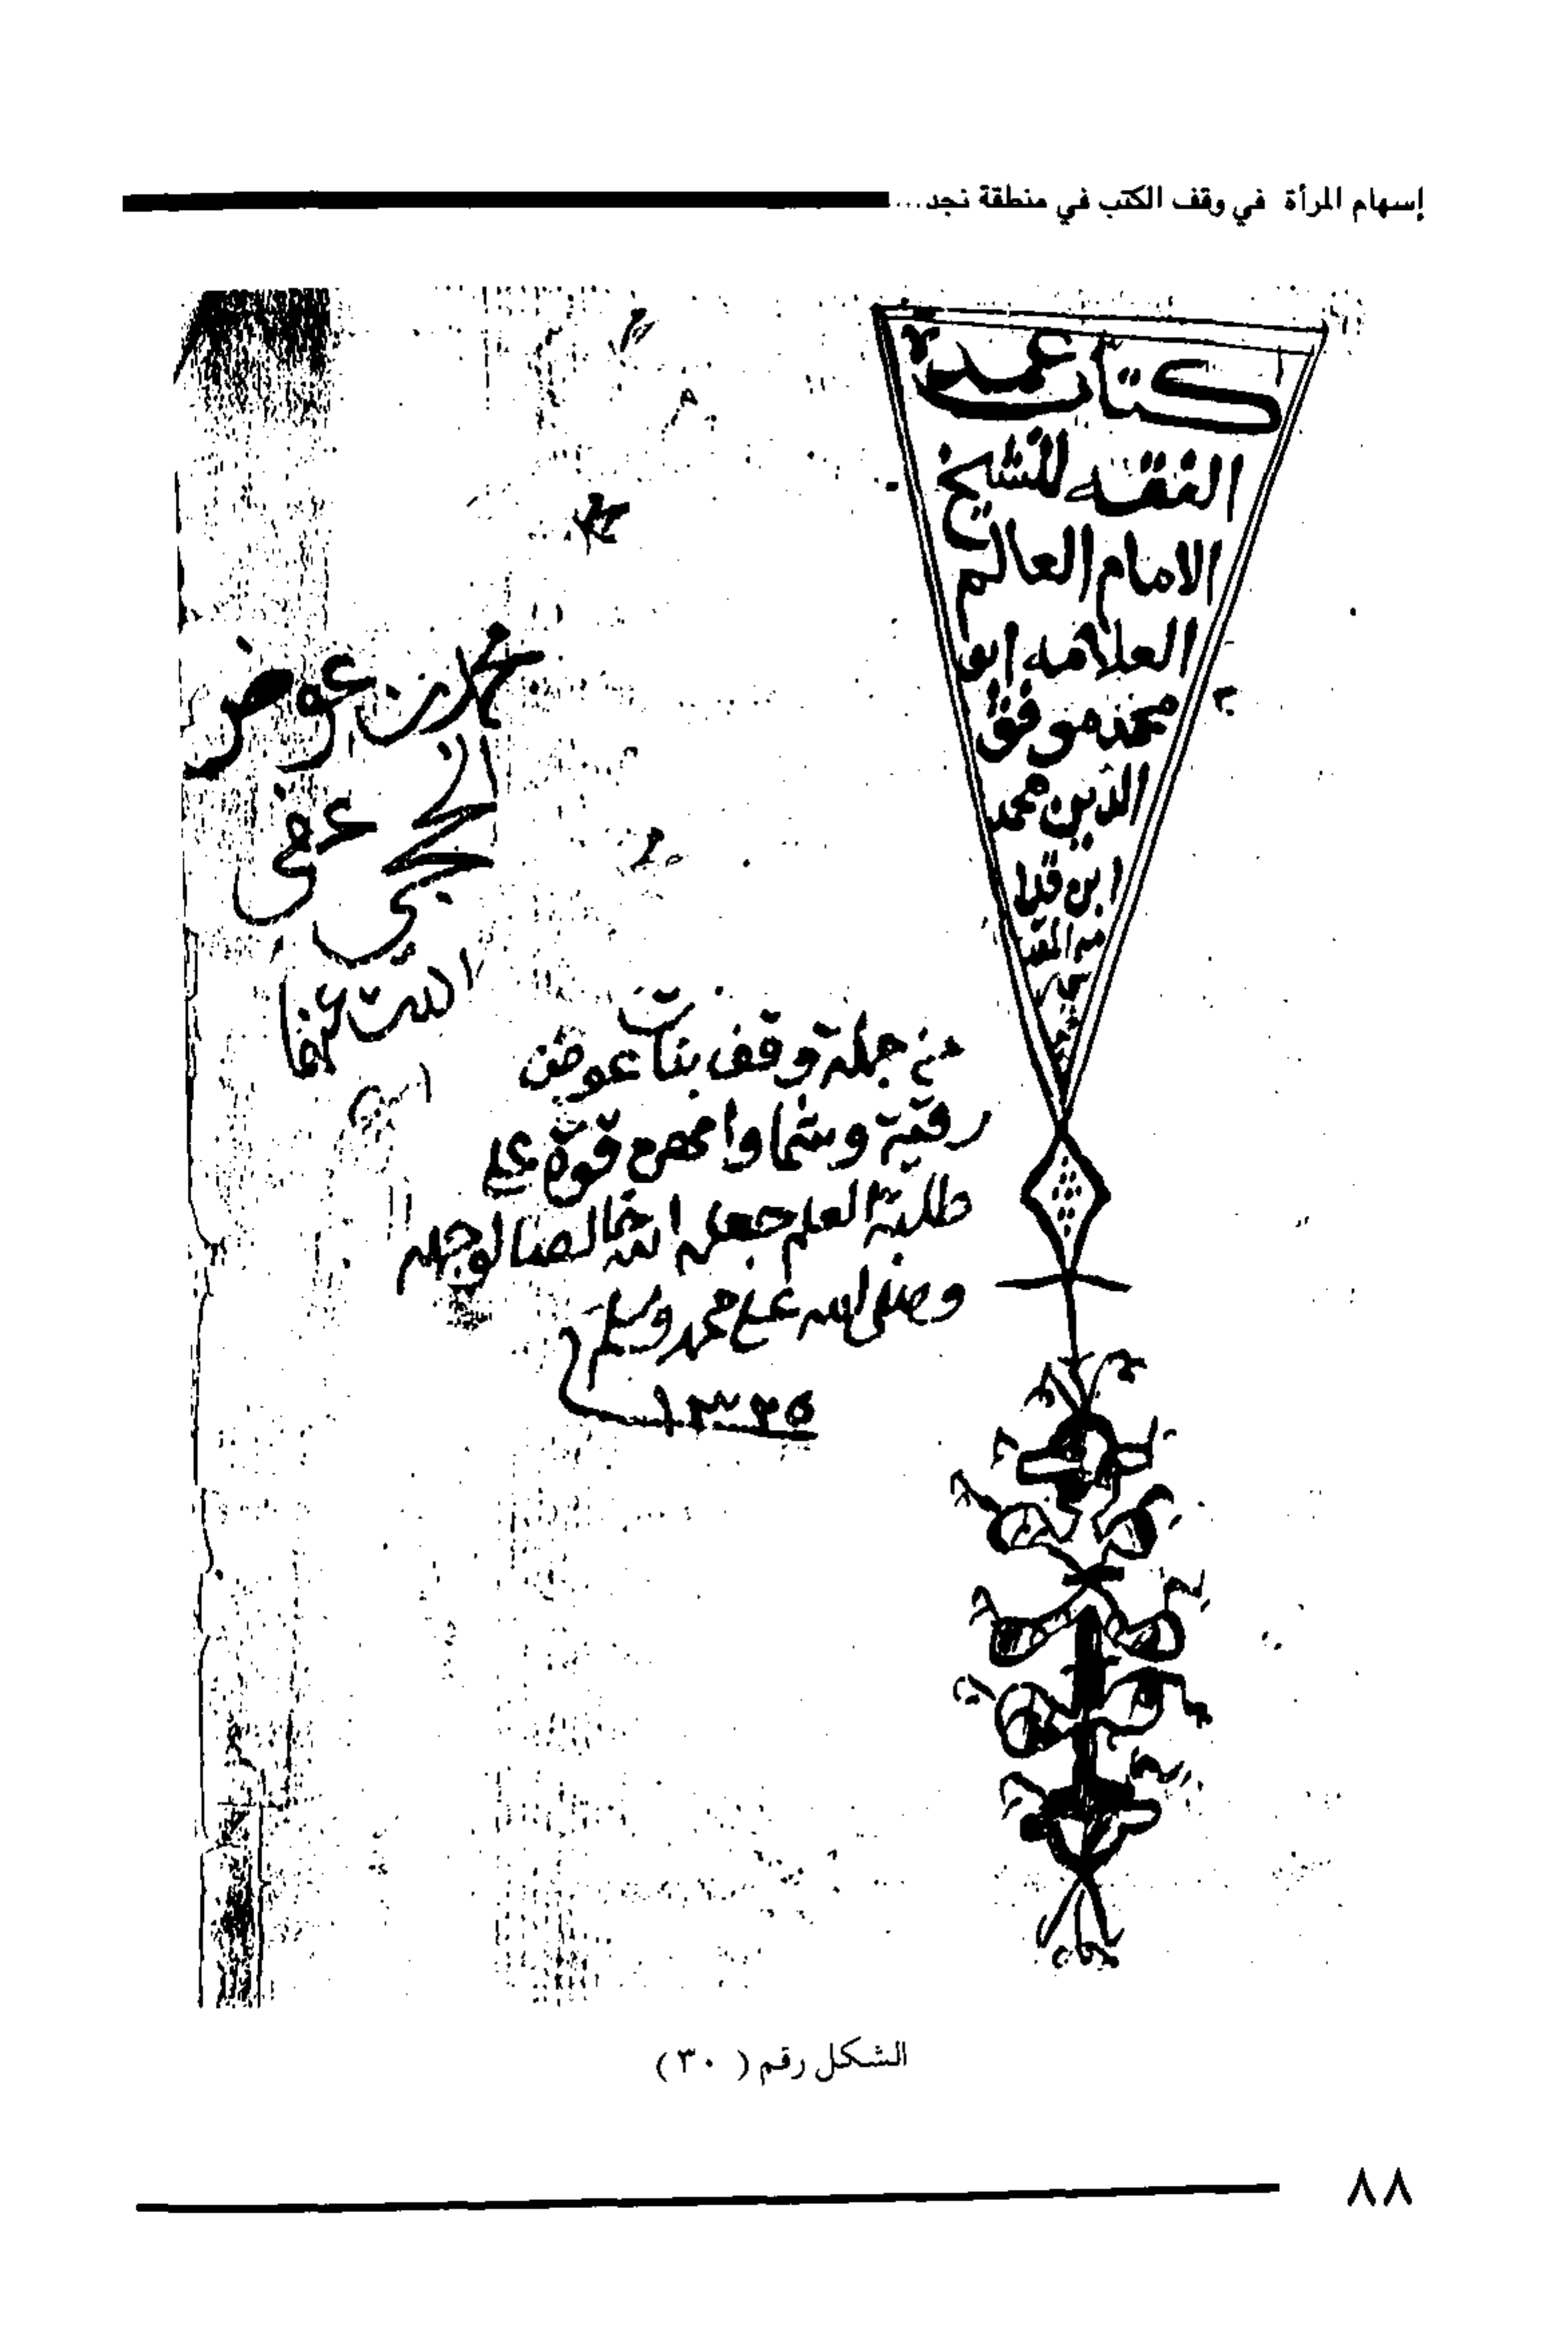 إسهام المرأة في وقف الكتب في منطقة نجد...
كتاب عمدة
الفقه للشيخ
الامام العالم
العلامه ابو
محمد موفق
الدين محمد
ابن قدا
مه المقد
سي
محمد بن عوض
الحجي عفى
الله عنهما
امين
من جملة وقف بنات عوض
رقية وشما وامهن قوة على
طلبة العلم جعله الله خالصا لوجهه
وصلى الله على محمد وسلم
١٣٣٥
الشكل رقم ( ٣٠ )
٨٨